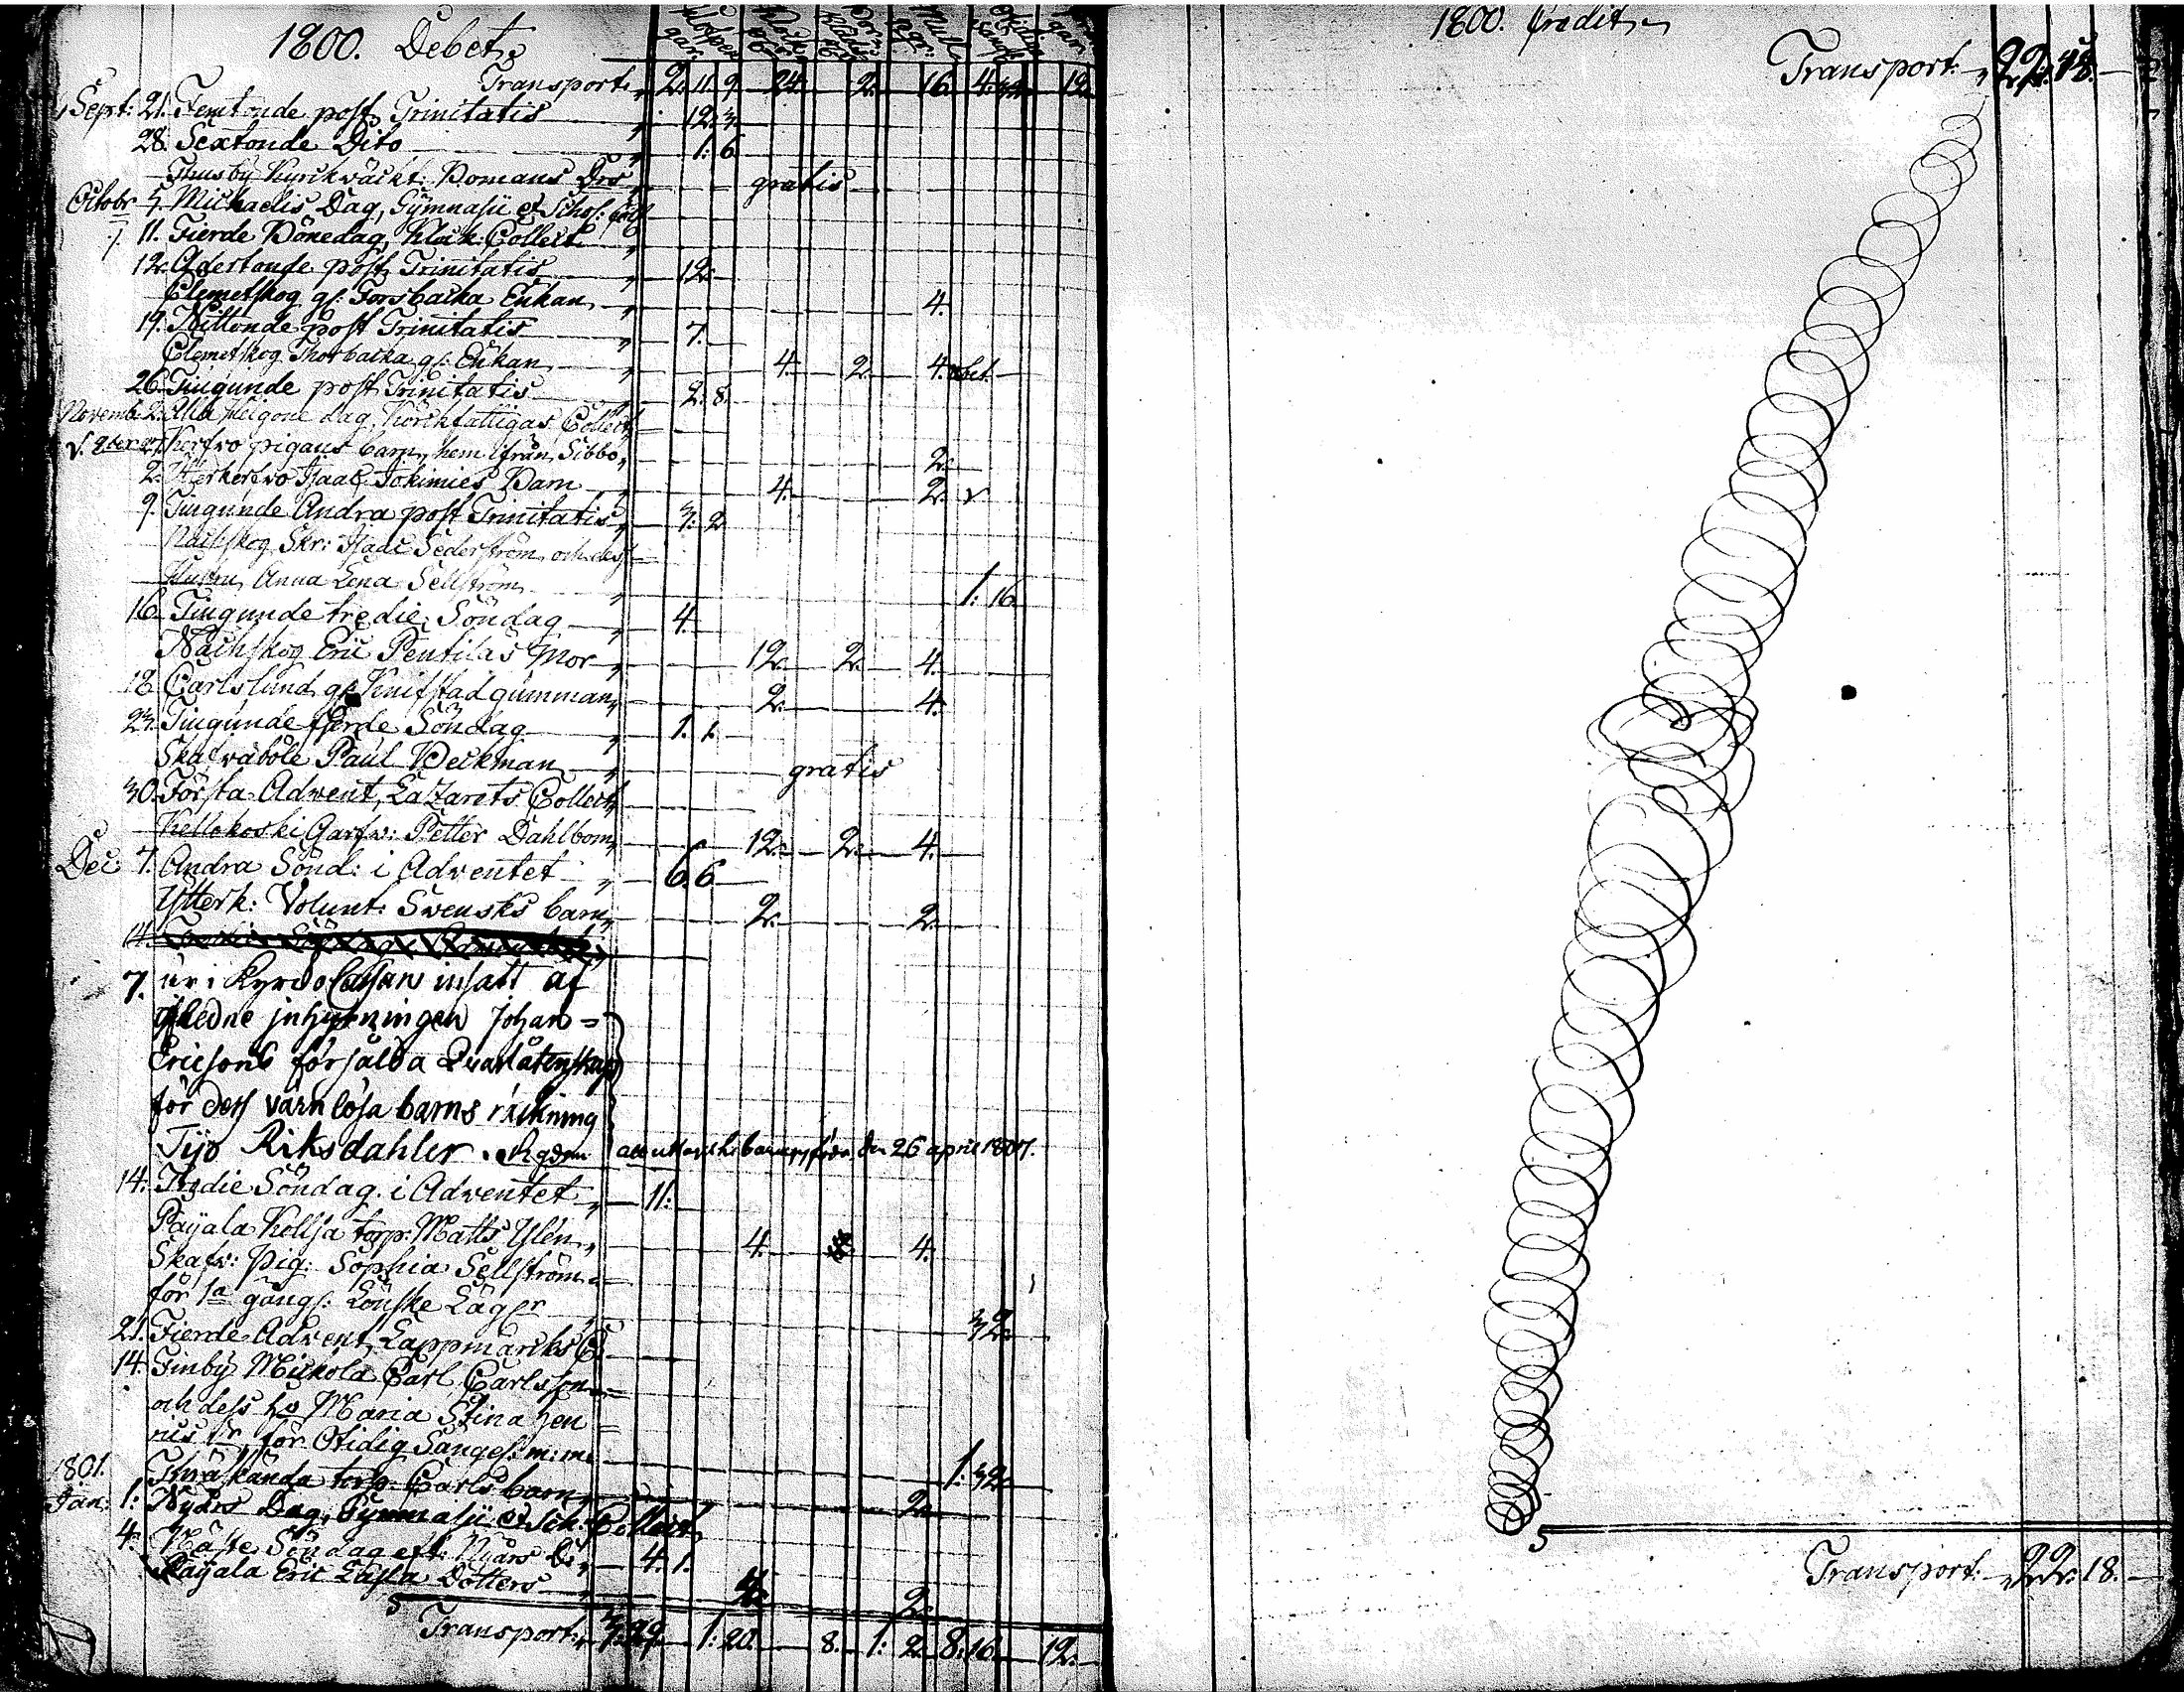 1800. Debet
Transport 2. 11. 9. 24. 2. 16. 4. 12.
Sept: 21. Femtonde post Trinitatis 12. 3
28. Sextonde Dito 1: 6
Thusby Kyrckväckt: gratis
Octobr 5. Michaelis Dag, Gymnasii et Schol:
11. Fierde Bönedag, Klock: Collect
12. Adertonde post Trinitatis 12.
Clemetskog gl: Forsbacka Enkan 4.
19. Nittonde post Trinitatis 7.
Clemetskog Thorbacka gl: Enkan 4. 2. 4.
26. Tiugunde post Trinitatis 2. 8.
Novemb: 2. Alla helgone dag, Collect
Kerfvo pigans barn, hem ifrån Sibbo 2.
2. Isaac Jokimies Barn 4. 2.
9. Tiugunde Andra post Trinitatis 3: 2
Nackskog Skr: Isaac Sederström och dess
Hustru Anna Lena Sellström 1: 16.
16. Tiugunde tredie Söndag 4.
Nackskog Eric Pentilas Mor 12. 2. 4.
18. Carlslund gl: Knifstad gumman 2. 4.
23. Tiugunde fierde Söndag 1. 1.
Skafvaböle Paul Beckman gratis
30. Första Advent, Lazarets Collect
Kellokoski Garfv: Petter Dahlbom 12. 2. 4.
Dec: 7. Andra Sönd: i Adventet 6. 6
Ytterk: Volunt: Svensks barn 2. 2.
14.
7. är i Kyrcio Cassan insatt af
afledne inhysningen Johan
Ericsons försålda Qvarlåtenskap
för dess värnlösa barns räkning
Tijo Riksdahler den 26 april 1807.
14. Tredie Söndag i Adventet 11:
Payala Kollja torp: Matts Ylén 4. 4.
Skafv: pig: Sophia Sellström
för 1a gångs: Lönske Läger 32.
21. Fierde Advent, Lappmarcks C
14. Finby Mickola Carl Carlsson
och dess Maria Stina Hen
för Otidig Sänges: m:m: 1: 32.
1801. Träskända torp: Carls barn 2.
Jan: 1: Nyårs Dag, Gymnasii et Sch: Collect
4. Näste Söndag eft: Nyårs D: 4. 1.
Payala Eric Dotters 2.
Transport 7: 29 1: 20. 8. 1: 2 8: 16. 12.
1800. Credit
Transport 22. 18.
Transport 22: 18.